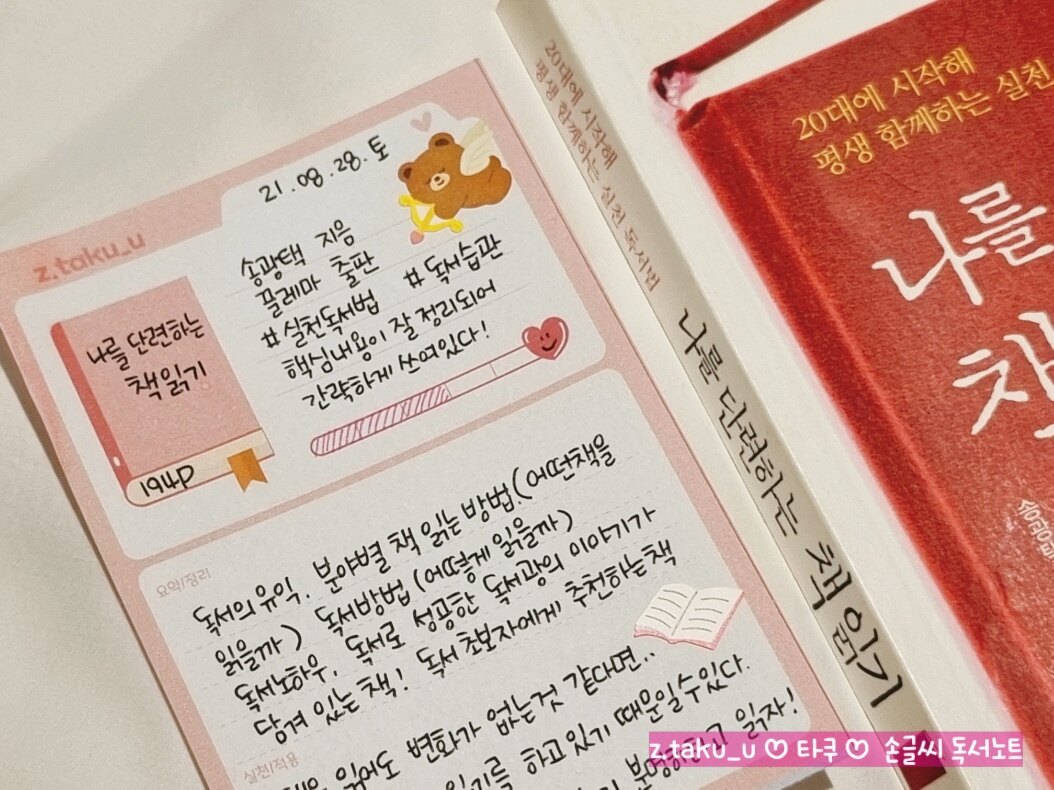 z.taku_u
21.08.28.토
송광택 지음
끌레마 출판
#실천독서법 #독서습관
핵심내용이 잘 정리되어
간략하게 쓰여있다!
나를 단련하는
책 읽기
194P
요약/정리
독서의 유익. 분야별 책 읽는 방법.(어떤책을
읽을까) 독서방법(어떻게 읽을까)
독서노하우, 독서로 성공한 독서광의 이야기가
담겨 있는 책! 독서 초보자에게 추천하는 책
실천/적용
읽어도 변화가 없는것 같다면..
읽기를 하고있기 때문일수있다.
분명하고 읽자!
20대에 시작해
평생 함께하는 실천 독서법
나를 단련하는 책 읽기
20대에 시작해
평생 함께하는 실천
나를
책
z.taku_u ♡ 타쿠 ♡ 손글씨 독서노트